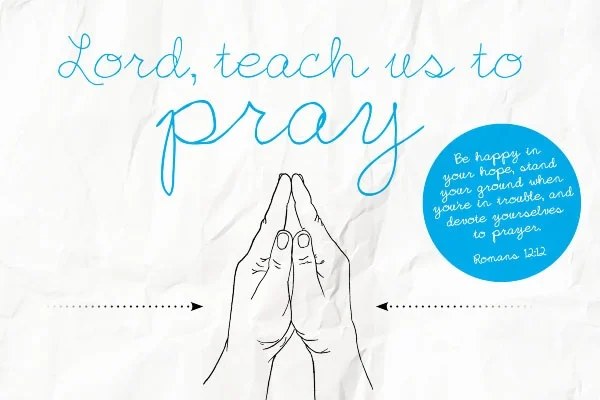 Lord, teach us to
pray
Be happy in
your hope, stand
your ground when
you're in trouble, and
devote yourselves
to prayer.
Romans 12:12